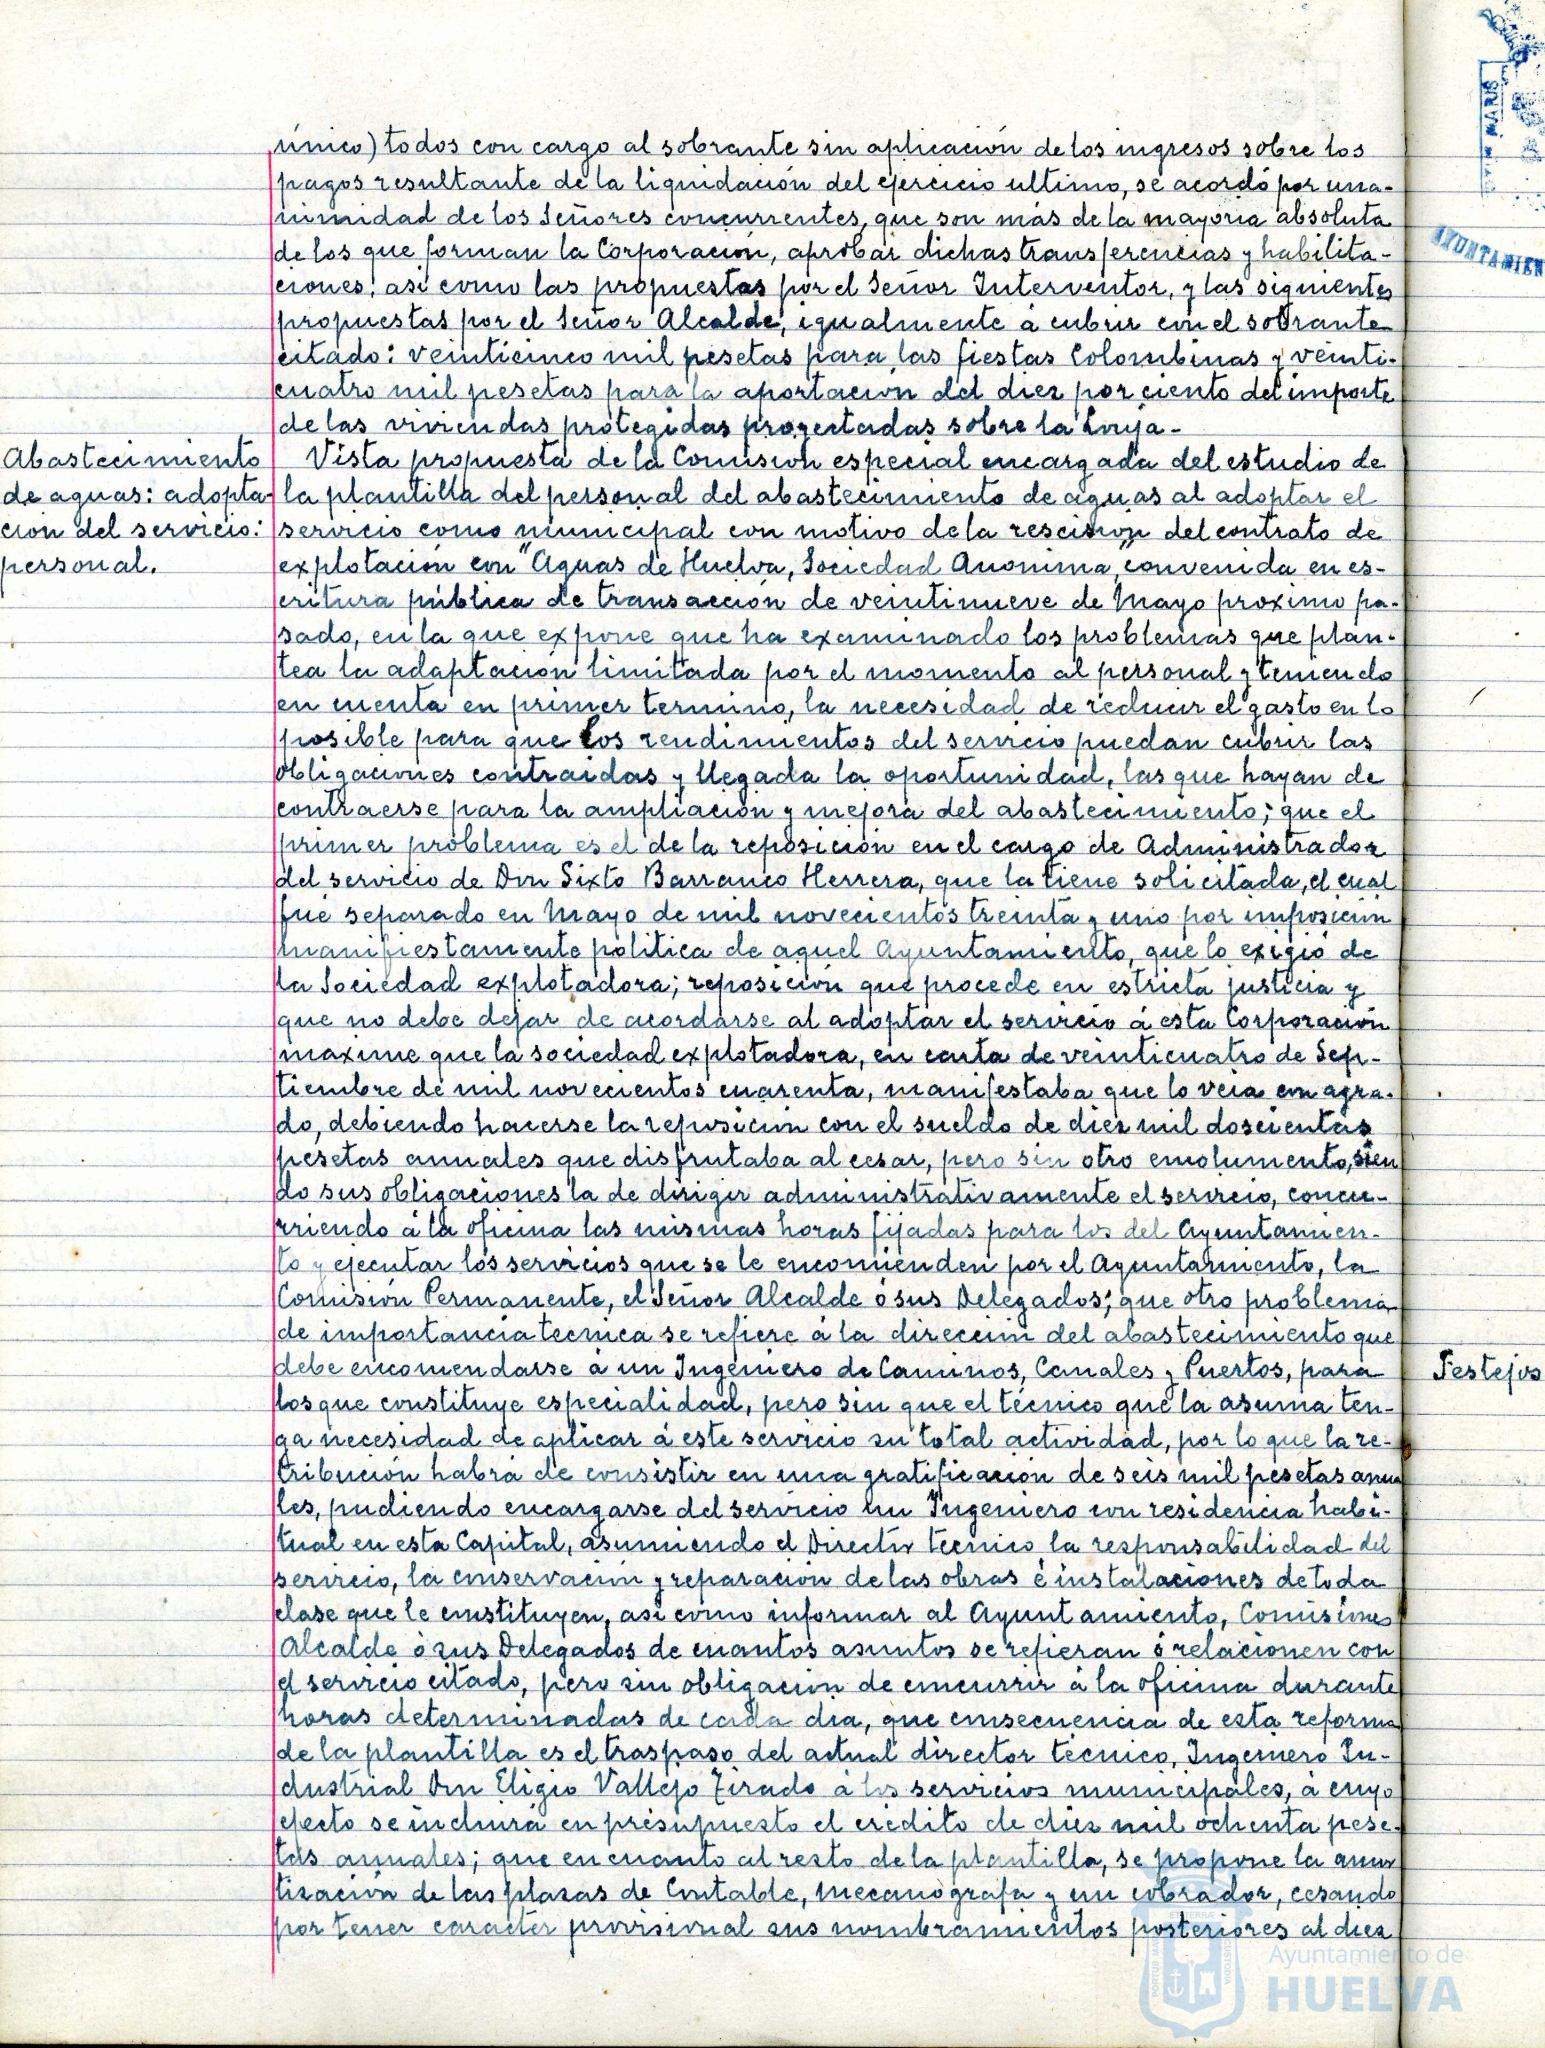 único) todos con cargo al sobrante sin aplicación de los ingresos sobre los
pagos resultante de la liquidación del ejercicio ultimo, se acordó por una-
nimidad de los Señores concurrentes, que son más de la mayoria absoluta
de los que forman la Corporación, aprobar dichas transferencias y habilita-
ciones: asi como las propuestas por el Señor Interventor, y las siguientes
propuestas por el Señor Alcalde, igualmente á cubrir con el sobrante
citado: veinticinco mil pesetas para las fiestas Colombinas y veinti-
cuatro mil pesetas para la aportación del diez por ciento del importe
de las viviendas protegidas proyectadas sobre la Lonja-
Abastecimiento
de aguas: adopta-
ción del servicio:
personal.
Vista propuesta de la Comisión especial encargada del estudio de
la plantilla del personal del abastecimiento de aguas al adoptar el
servicio como municipal con motivo de la rescisión del contrato de
explotación con "Aguas de Huelva, Sociedad Anonima", convenida en es-
critura pública de transacción de veintinueve de Mayo proximo pa-
sado, en la que expone que ha examinado los problemas que plan-
tea la adaptación limitada por el momento al personal y teniendo
en cuenta en primer termino, la necesidad de reducir el gasto en lo
posible para que los rendimientos del servicio puedan cubrir las
obligaciones contraidas y llegada la oportunidad, las que hayan de
contraerse para la ampliación y mejora del abastecimiento; que el
primer problema es el de la reposición en el cargo de Administrador
del servicio de Don Sixto Barranco Herrera, que la tiene solicitada, el cual
fué separado en Mayo de mil novecientos treinta y uno por imposición
manifiestamente politica de aquel Ayuntamiento, que lo exigió de
la Sociedad explotadora; reposición que procede en estricta justicia y
que no debe dejar de acordarse al adoptar el servicio á esta Corporación
maxime que la sociedad explotadora, en carta de veinticuatro de Sep-
tiembre de mil novecientos cuarenta, manifestaba que lo veia con agra-
do, debiendo hacerse la reposición con el sueldo de diez mil doscientas
pesetas anuales que disfrutaba al cesar, pero sin otro emolumento, sien
do sus obligaciones la de dirigir administrativamente el servicio, concu-
rriendo á la oficina las mismas horas fijadas para los del Ayuntamien-
to y ejecutar los servicios que se le encomienden por el Ayuntamiento, la
Comisión Permanente, el Señor Alcalde ó sus Delegados; que otro problema
de importancia tecnica se refiere á la dirección del abastecimiento que
debe encomendarse á un Ingeniero de Caminos, Canales y Puertos, para
los que constituye especialidad, pero sin que el técnico que la asuma ten-
ga necesidad de aplicar á este servicio su total actividad, por lo que la re-
tribución habrá de consistir en una gratificación de seis mil pesetas anua
les, pudiendo encargarse del servicio un Ingeniero con residencia habi-
tual en esta Capital, asumiendo el Director tecnico la responsabilidad del
servicio, la conservación y reparación de las obras é instalaciones de toda
clase que le constituyen, asi como informar al Ayuntamiento, Comisiones
Alcalde ó sus Delegados de cuantos asuntos se refieran ó relacionen con
el servicio citado, pero sin obligación de concurrir á la oficina durante
horas determinadas de cada dia, que consecuencia de esta reforma
de la plantilla es el traspaso del actual director técnico, Ingeniero In-
dustrial Don Eligio Vallejo Tirado á los servicios municipales, á cuyo
efecto se incluirá en presupuesto el crédito de diez mil ochenta pese-
tas anuales; que en cuanto al resto de la plantilla, se propone la amor
tización de las plazas de Contable, mecanógrafa y un cobrador, cesando
por tener caracter provisional sus nombramientos posteriores al diez
Festejos
AYUNTAMIEN
Ayuntamiento de
HUELVA